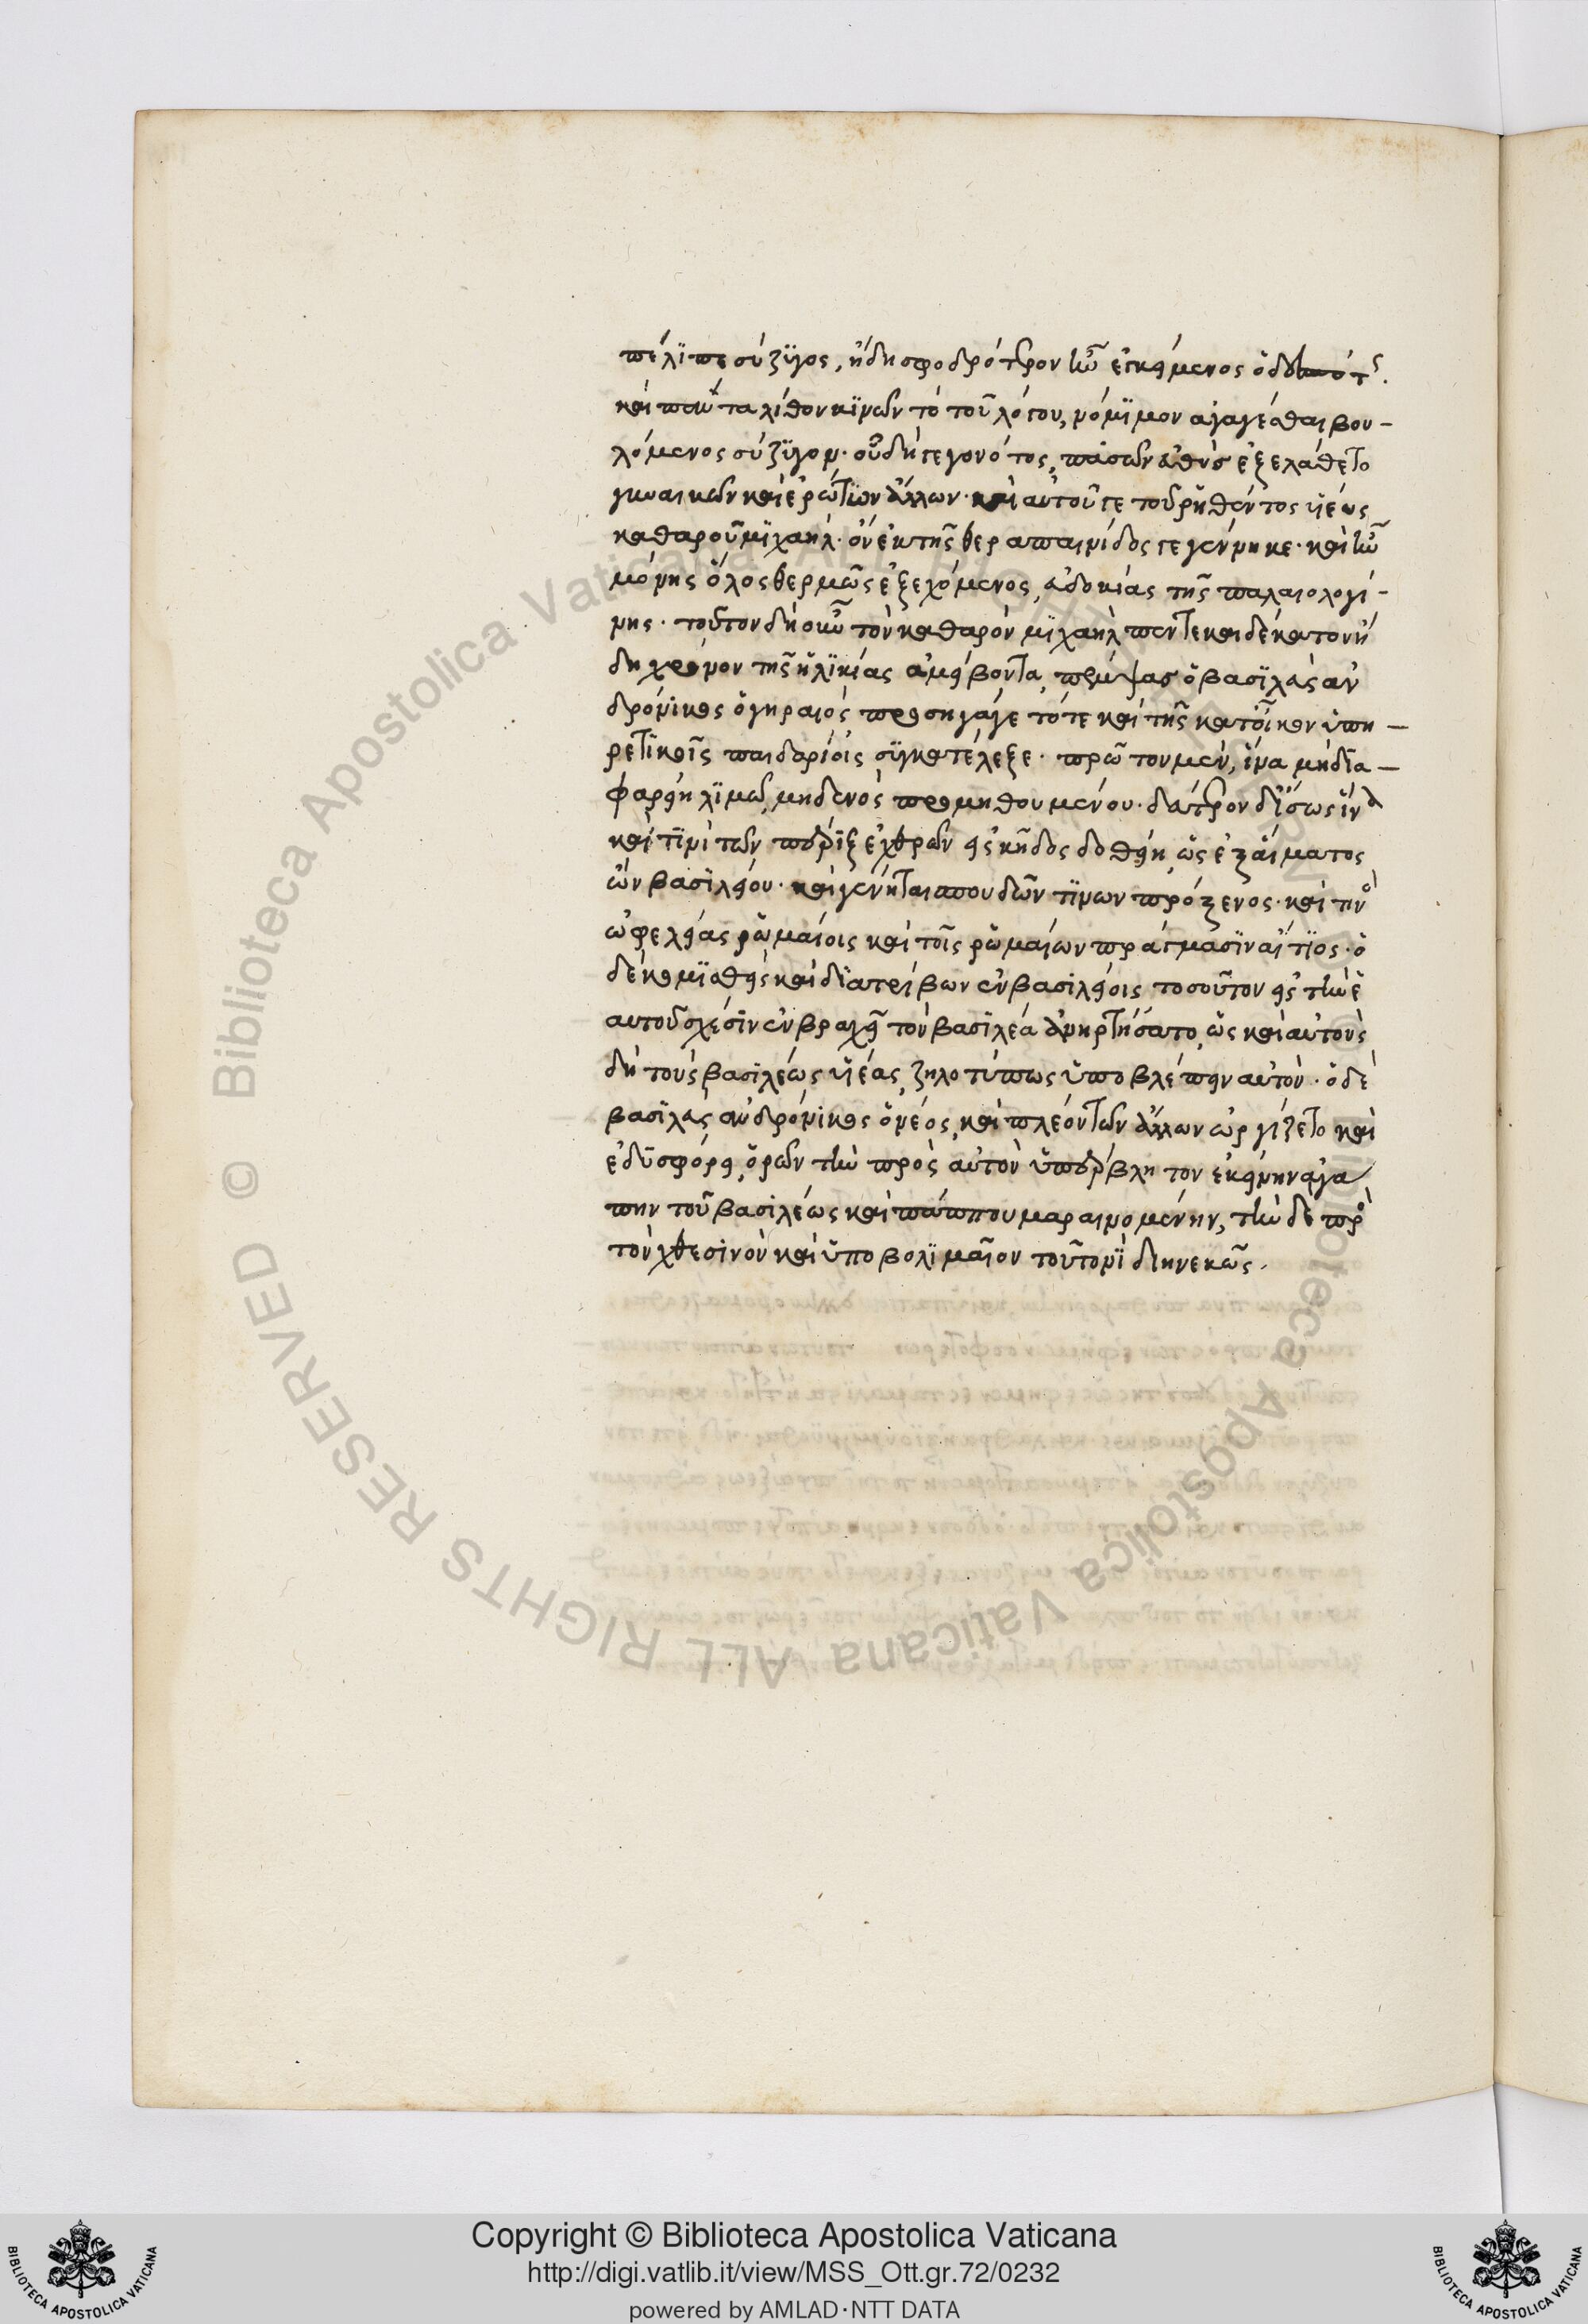 πέλϊπε σύζϋγος, ἤδη σφοδρότερον ἦν ἐγκείμενος ὁ δεσπότης.
καὶ πάντα λίθον κϊνῶν τὸ τοῦ λόγου, νόμϊμον ἀγαγέσθαι βου-
λόμενος σύζϋγον. οὗ δὴ γεγονότος, πασῶν εὐθὺς ἐξελάθετο
γυναικῶν καὶ ἐρώτων ἄλλων. καὶ αὐτοῦ γε τοῦ ῥηθέντος υἱέως
καθαροῦ μϊχαήλ. ὃν ἐκ τῆς θεραπαινίδος γεγέννηκε. καὶ ἦν
μόνης ὅλος θερμῶς ἐξεχόμενος, εὐδοκίας τῆς παλαιολογί-
νης. τοῦτον δὴ οὖν τὸν καθαρὸν μϊχαὴλ πεντεκαιδέκατον ἤ
δη χρόνον τῆς ἡλϊκίας ἀμείβοντα, πέμψας ὁ βασϊλεὺς ἀν
δρόνϊκος ὁ γηραιὸς προσηγάγε τότε καὶ τῆς κατ' οἶκον ὑπη-
ρετϊκοῖς παιδαρίοις σϋγκατέλεξε. πρῶτον μὲν, ἵνα μὴ δϊα-
φαρείη λϊμῷ, μηδενὸς προμηθουμένου. δεύτερον δ' ἴσως ἵνα
καὶ τϊνὶ τῶν πέριξ ἐχθρῶν εἰς κῆδος δοθείη, ὡς ἐξ αἵματος
ὢν βασϊλείου. καὶ γένηται σπουδῶν τϊνων πρόξενος. καὶ τινος
ὠφελείας ῥωμαίοις καὶ τοῖς ῥωμαίων πράγμασϊν αἴτϊος. ὁ
δὲ κομϊσθεὶς καὶ δϊατρίβων ἐν βασιλείοις τοσοῦτον εἰς τὴν ἑ
αυτοῦ σχέσϊν ἐν βραχεῖ τὸν βασϊλέα ἀνηρτήσατο, ὡς καὶ αὐτοὺς
δὴ τοὺς βασϊλέως υἱέας, ζηλοτύπως ὑποβλέπειν αὐτόν. ὁ δὲ
βασϊλεὺς ἀνδρόνϊκος ὁ νέος, καὶ πλέον τῶν ἄλλων ὠργίζετο καὶ
ἐδϋσφόρει, ὁρῶν τὴν πρὸς αὐτὸν ὑπέρβλητον ἐκείνην ἀγά
πην τοῦ βασιλέως καὶ πάππου μαραινομένην, τὴν δὲ πρὸς
τὸν χθεσινὸν καὶ ὑποβολϊμαῖον τουτονῒ διηνεκῶς.
Copyright © Biblioteca Apostolica Vaticana
http://digi.vatlib.it/view/MSS_Ott.gr.72/0232
powered by AMLAD·NTT DATA